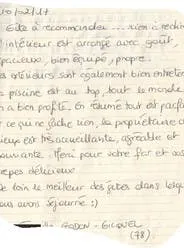 10/02/17
Gîte à recommander ... rien à redire
l'intérieur est arrangé avec goût,
spacieux, bien équipé, propre.
Les extérieurs sont également bien entretenu
piscine est au top, tout le monde
en a bien profité. En résumé tout est parfait
ce qui ne gâche rien, la propriétaire
est très accueillante, agréable et
souriante. Merci pour votre far et vos
crêpes délicieux
De loin le meilleur des gîtes dans lesquels
nous avons séjourné :)
GODON - GICQUEL
(78)